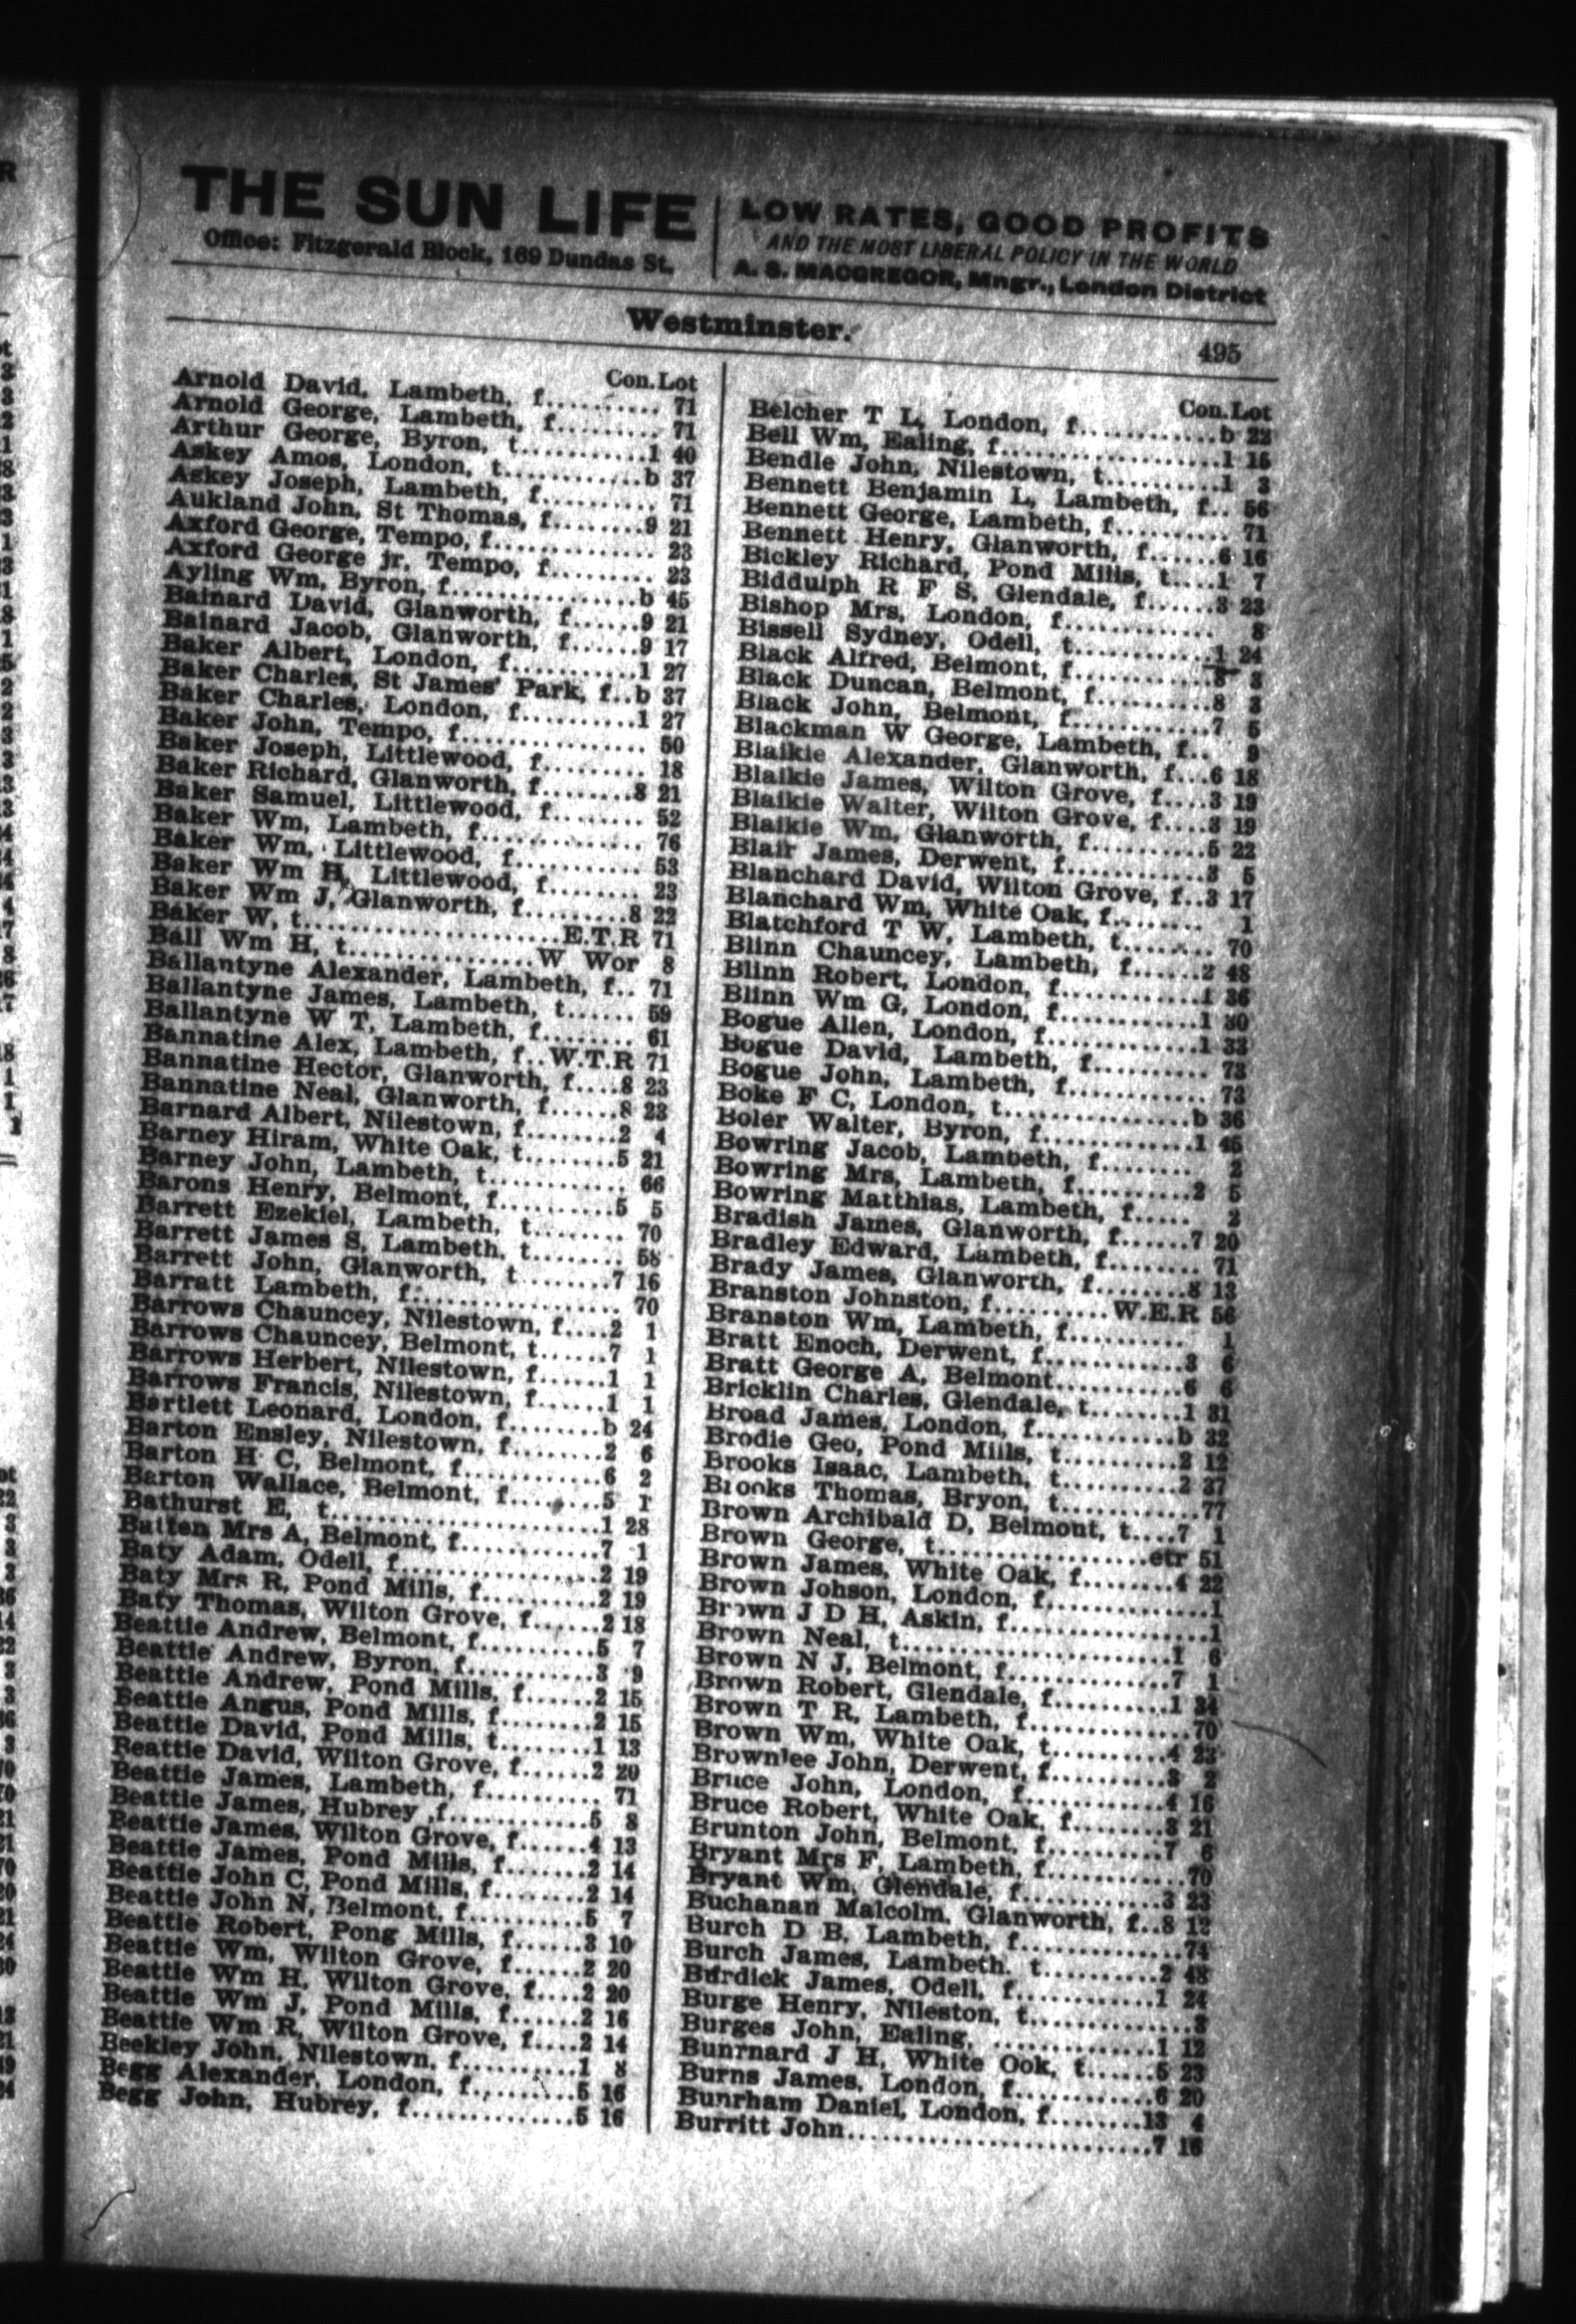 THE SUN LIFE
Office: Fitzgerald Block, 169 Dundas St.
LOW RATES, GOOD PROFITS
AND THE MOST LIBERAL POLICY IN THE WORLD
A. S. MACGREGOR, Mngr., London District
Westminster.
495
Con.Lot
Arnold David, Lambeth, f.......... 71
Arnold George, Lambeth, f......... 71
Arthur George, Byron, t............1 40
Askey Amos, London, t.............b 37
Askey Joseph, Lambeth, f.......... 71
Aukland John, St Thomas, f........9 21
Axford George, Tempo, f.............. 23
Axford George jr, Tempo, f......... 23
Ayling Wm, Byron, f................b 45
Bainard David, Glanworth, f......9 21
Bainard Jacob, Glanworth, f......9 17
Baker Albert, London, f............1 27
Baker Charles, St James' Park, f..b 37
Baker Charles, London, f..........1 27
Baker John, Tempo, f................ 50
Baker Joseph, Littlewood, f......... 18
Baker Richard, Glanworth, f........8 21
Baker Samuel, Littlewood, f........ 52
Baker Wm, Lambeth, f............... 76
Baker Wm, Littlewood, f............ 53
Baker Wm H, Littlewood, f........ 23
Baker Wm J, Glanworth, f.........8 22
Baker W, t.......................E.T.R 71
Ball Wm H, t.................W Wor 8
Ballantyne Alexander, Lambeth, f.. 71
Ballantyne James, Lambeth, t...... 59
Ballantyne W T, Lambeth, f........ 61
Bannatine Alex, Lambeth, f..W.T.R 71
Bannatine Hector, Glanworth, f....8 23
Bannatine Neal, Glanworth, f......8 23
Barnard Albert, Nilestown, f........2 4
Barney Hiram, White Oak, t........5 21
Barney John, Lambeth, t............ 66
Barons Henry, Belmont, f..........5 5
Barrett Ezekiel, Lambeth, t........ 70
Barrett James S, Lambeth, t........ 58
Barrett John, Glanworth, t........7 16
Barratt Lambeth, f.................. 70
Barrows Chauncey, Nilestown, f....2 1
Barrows Chauncey, Belmont, t......7 1
Barrows Herbert, Nilestown, f......1 1
Barrows Francis, Nilestown, f......1 1
Bartlett Leonard, London, f........b 24
Barton Ensley, Nilestown, f........2 6
Barton H C, Belmont, f............6 2
Barton Wallace, Belmont, f........5 1
Bathurst E, t.......................1 28
Batten Mrs A, Belmont, f............7 1
Baty Adam, Odell, f.................2 19
Baty Mrs R, Pond Mills, f..........2 19
Baty Thomas, Wilton Grove, f......2 18
Beattie Andrew, Belmont, f.........5 7
Beattie Andrew, Byron, f...........3 9
Beattie Andrew, Pond Mills, f......2 15
Beattie Angus, Pond Mills, f........2 15
Beattie David, Pond Mills, t........1 13
Beattie David, Wilton Grove, f......2 20
Beattie James, Lambeth, f.......... 71
Beattie James, Hubrey ,f............5 8
Beattie James, Wilton Grove, f......4 13
Beattie James, Pond Mills, f........2 14
Beattie John C, Pond Mills, f........2 14
Beattie John N, Belmont, f..........5 7
Beattie Robert, Pong Mills, f......3 10
Beattie Wm, Wilton Grove, f......2 20
Beattie Wm H, Wilton Grove, f....2 20
Beattie Wm J, Pond Mills, f......2 16
Beattie Wm R, Wilton Grove, f....2 14
Beekley John, Nilestown, f..........1 8
Begg Alexander, London, f..........5 16
Begg John, Hubrey, f...............5 16
Con.Lot
Belcher T L, London, f............b 22
Bell Wm, Ealing, f...................1 15
Bendle John, Nilestown, t..........1 3
Bennett Benjamin L, Lambeth, f.. 56
Bennett George, Lambeth, f.......... 71
Bennett Henry, Glanworth, f......6 16
Bickley Richard, Pond Mills, t....1 7
Biddulph R F S, Glendale, f......3 23
Bishop Mrs, London, f............. 8
Bissell Sydney, Odell, t............1 24
Black Alfred, Belmont, f............8 3
Black Duncan, Belmont, f..........8 3
Black John, Belmont, f............7 5
Blackman W George, Lambeth, f.. 9
Blaikie Alexander, Glanworth, f...6 18
Blaikie James, Wilton Grove, f....3 19
Blaikie Walter, Wilton Grove, f....3 19
Blaikie Wm, Glanworth, f..........5 22
Blair James, Derwent, f............3 5
Blanchard David, Wilton Grove, f..3 17
Blanchard Wm, White Oak, f........ 1
Blatchford T W, Lambeth, t........ 70
Blinn Chauncey, Lambeth, f......2 48
Blinn Robert, London, f............1 36
Blinn Wm G, London, f............1 30
Bogue Allen, London, f.............1 33
Bogue David, Lambeth, f.......... 73
Bogue John, Lambeth, f............ 73
Boke F C, London, t................b 36
Boler Walter, Byron, f.............1 45
Bowring Jacob, Lambeth, f........ 2
Bowring Mrs, Lambeth, f..........2 5
Bowring Matthias, Lambeth, f..... 2
Bradish James, Glanworth, f......7 20
Bradley Edward, Lambeth, f........ 71
Brady James, Glanworth, f.........8 13
Branston Johnston, f..........W.E.R 56
Branston Wm, Lambeth, f.......... 1
Bratt Enoch, Derwent, f............3 6
Bratt George A, Belmont............6 6
Bricklin Charles, Glendale, t........1 31
Broad James, London, f............b 32
Brodie Geo, Pond Mills, t..........2 12
Brooks Isaac, Lambeth, t..........2 37
Brooks Thomas, Bryon, t............77
Brown Archibald D, Belmont, t....7 1
Brown George, t..................etr 51
Brown James, White Oak, f........4 22
Brown Johson, London, f.............1
Brown J D H, Askin, f.................1
Brown Neal, t.......................1 6
Brown N J, Belmont, f..............7 1
Brown Robert, Glendale, f..........1 34
Brown T R, Lambeth, f..............70
Brown Wm, White Oak, t..........4 23
Brownlee John, Derwent, f..........3 2
Bruce John, London, f............4 16
Bruce Robert, White Oak, f........3 21
Brunton John, Belmont, f..........7 6
Bryant Mrs F, Lambeth, f............70
Bryant Wm, Glendale, f............3 23
Buchanan Malcolm, Glanworth, f..8 12
Burch D B, Lambeth, f..............74
Burch James, Lambeth. t..........2 48
Burdick James, Odell, f............1 24
Burge Henry, Nileston, t..............3
Burges John, Ealing, ..............1 12
Bunrnard J H, White Ook, t......5 23
Burns James, London, f............6 20
Bunrham Daniel, London, f........13 4
Burritt John..........................7 16